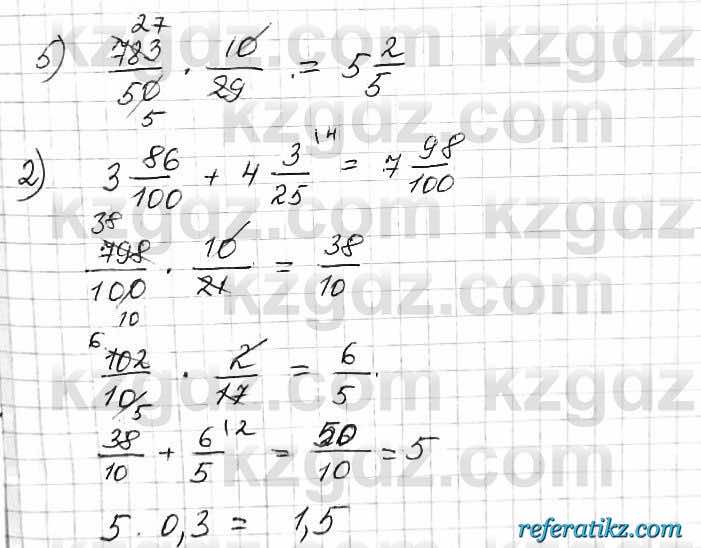 5) 783/50 · 10/29 = 5 2/5
27
5
2) 3 86/100 + 4 3/25 = 7 98/100
14
38
798/100 · 10/21 = 38/10
10
6
102/10 · 2/17 = 6/5
5
38/10 + 6/5 = 50/10 = 5
12
5 · 0,3 = 1,5
kzgdz.com
referatikz.com